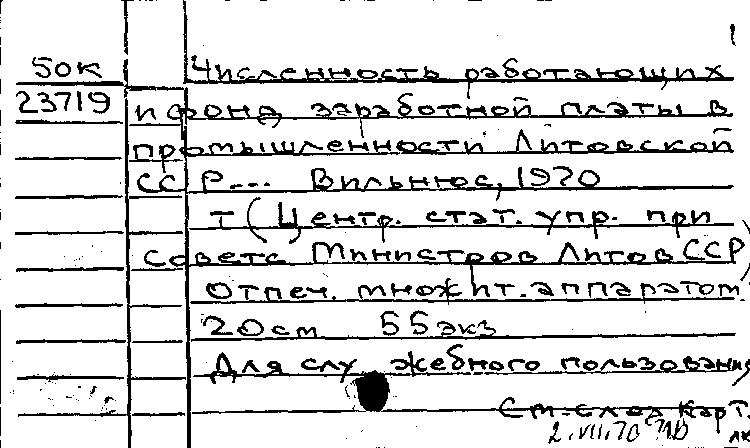 1
50к Численность работающих
23719 и фонд заработной платы в
промышленности Литовской
ССР... Вильнюс, 1970
т (Центр. стат. упр. при
Совете Министров Литов ССР)
Отпеч. множит. аппаратом.
20 см 55 экз
Для служебного пользования
См. след карт.
2.VII.70